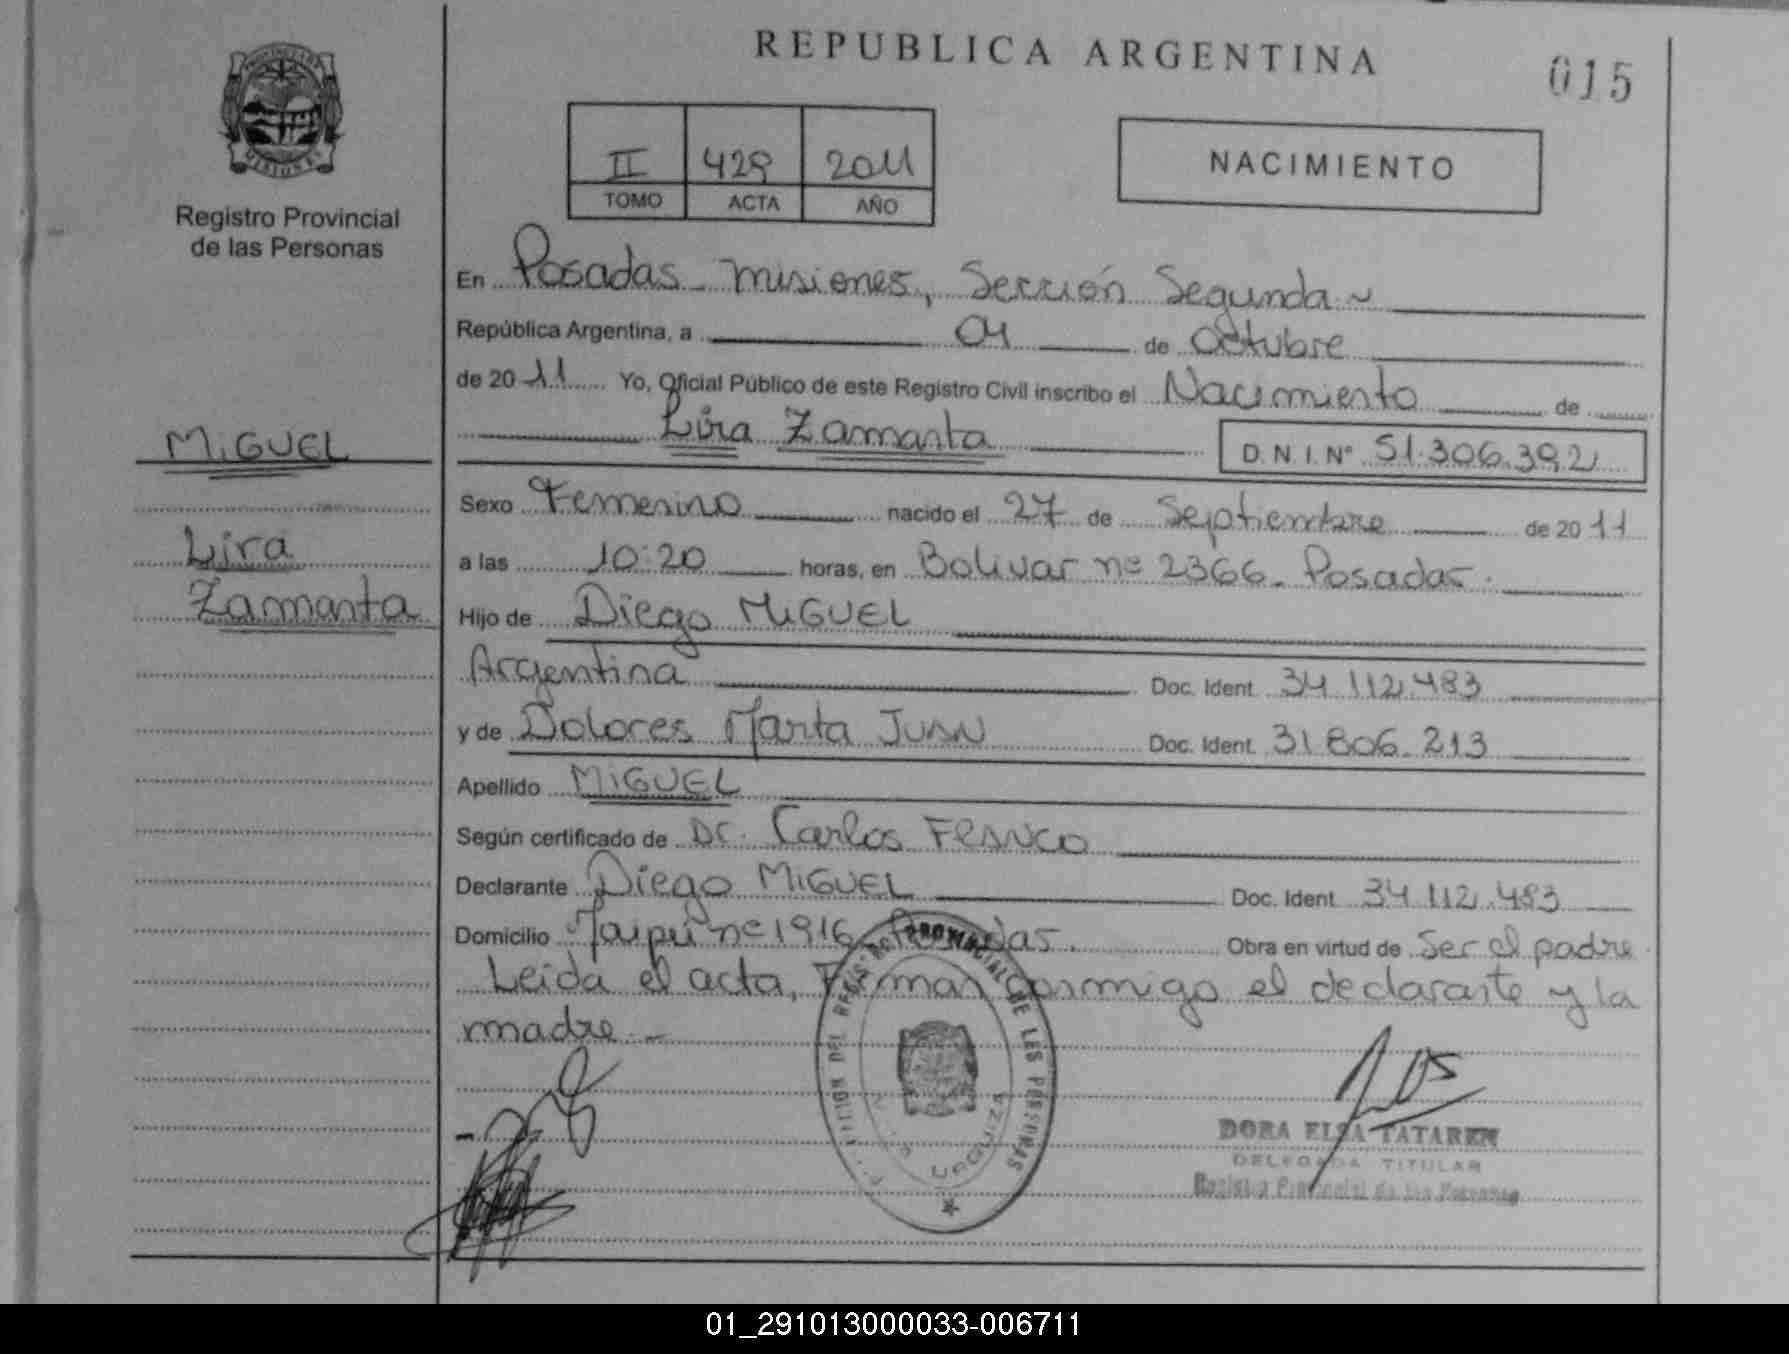 REPUBLICA ARGENTINA
015
II 429 2011
TOMO ACTA AÑO
NACIMIENTO
Registro Provincial
de las Personas
MIGUEL
Lira
Zamanta
En Posadas - Misiones, Sección Segunda
República Argentina, a 04 de Octubre
de 2011 Yo, Oficial Público de este Registro Civil inscribo el Nacimiento de
Lira Zamanta D.N.I.Nº 51.306.392
Sexo Femenino nacido el 27 de Septiembre de 2011
a las 10:20 horas, en Bolivar nº 2366 - Posadas.
Hijo de Diego MIGUEL
Argentina Doc. Ident. 34.112.483
y de Dolores Marta JUAN Doc. Ident. 31.806.213
Apellido MIGUEL
Según certificado de Dr. Carlos FRANCO
Declarante Diego MIGUEL Doc. Ident. 34.112.483
Domicilio nº 1916 - Posadas. Obra en virtud de Ser el padre.
Leida el acta, Firman conmigo el declarante y la
madre. -
DEL PROVINCIAL DE LES PERSONAS
URQUIZA
DORA ELSA TATAREN
DELEGADA TITULAR
Registro Provincial de las Personas
01_291013000033-006711